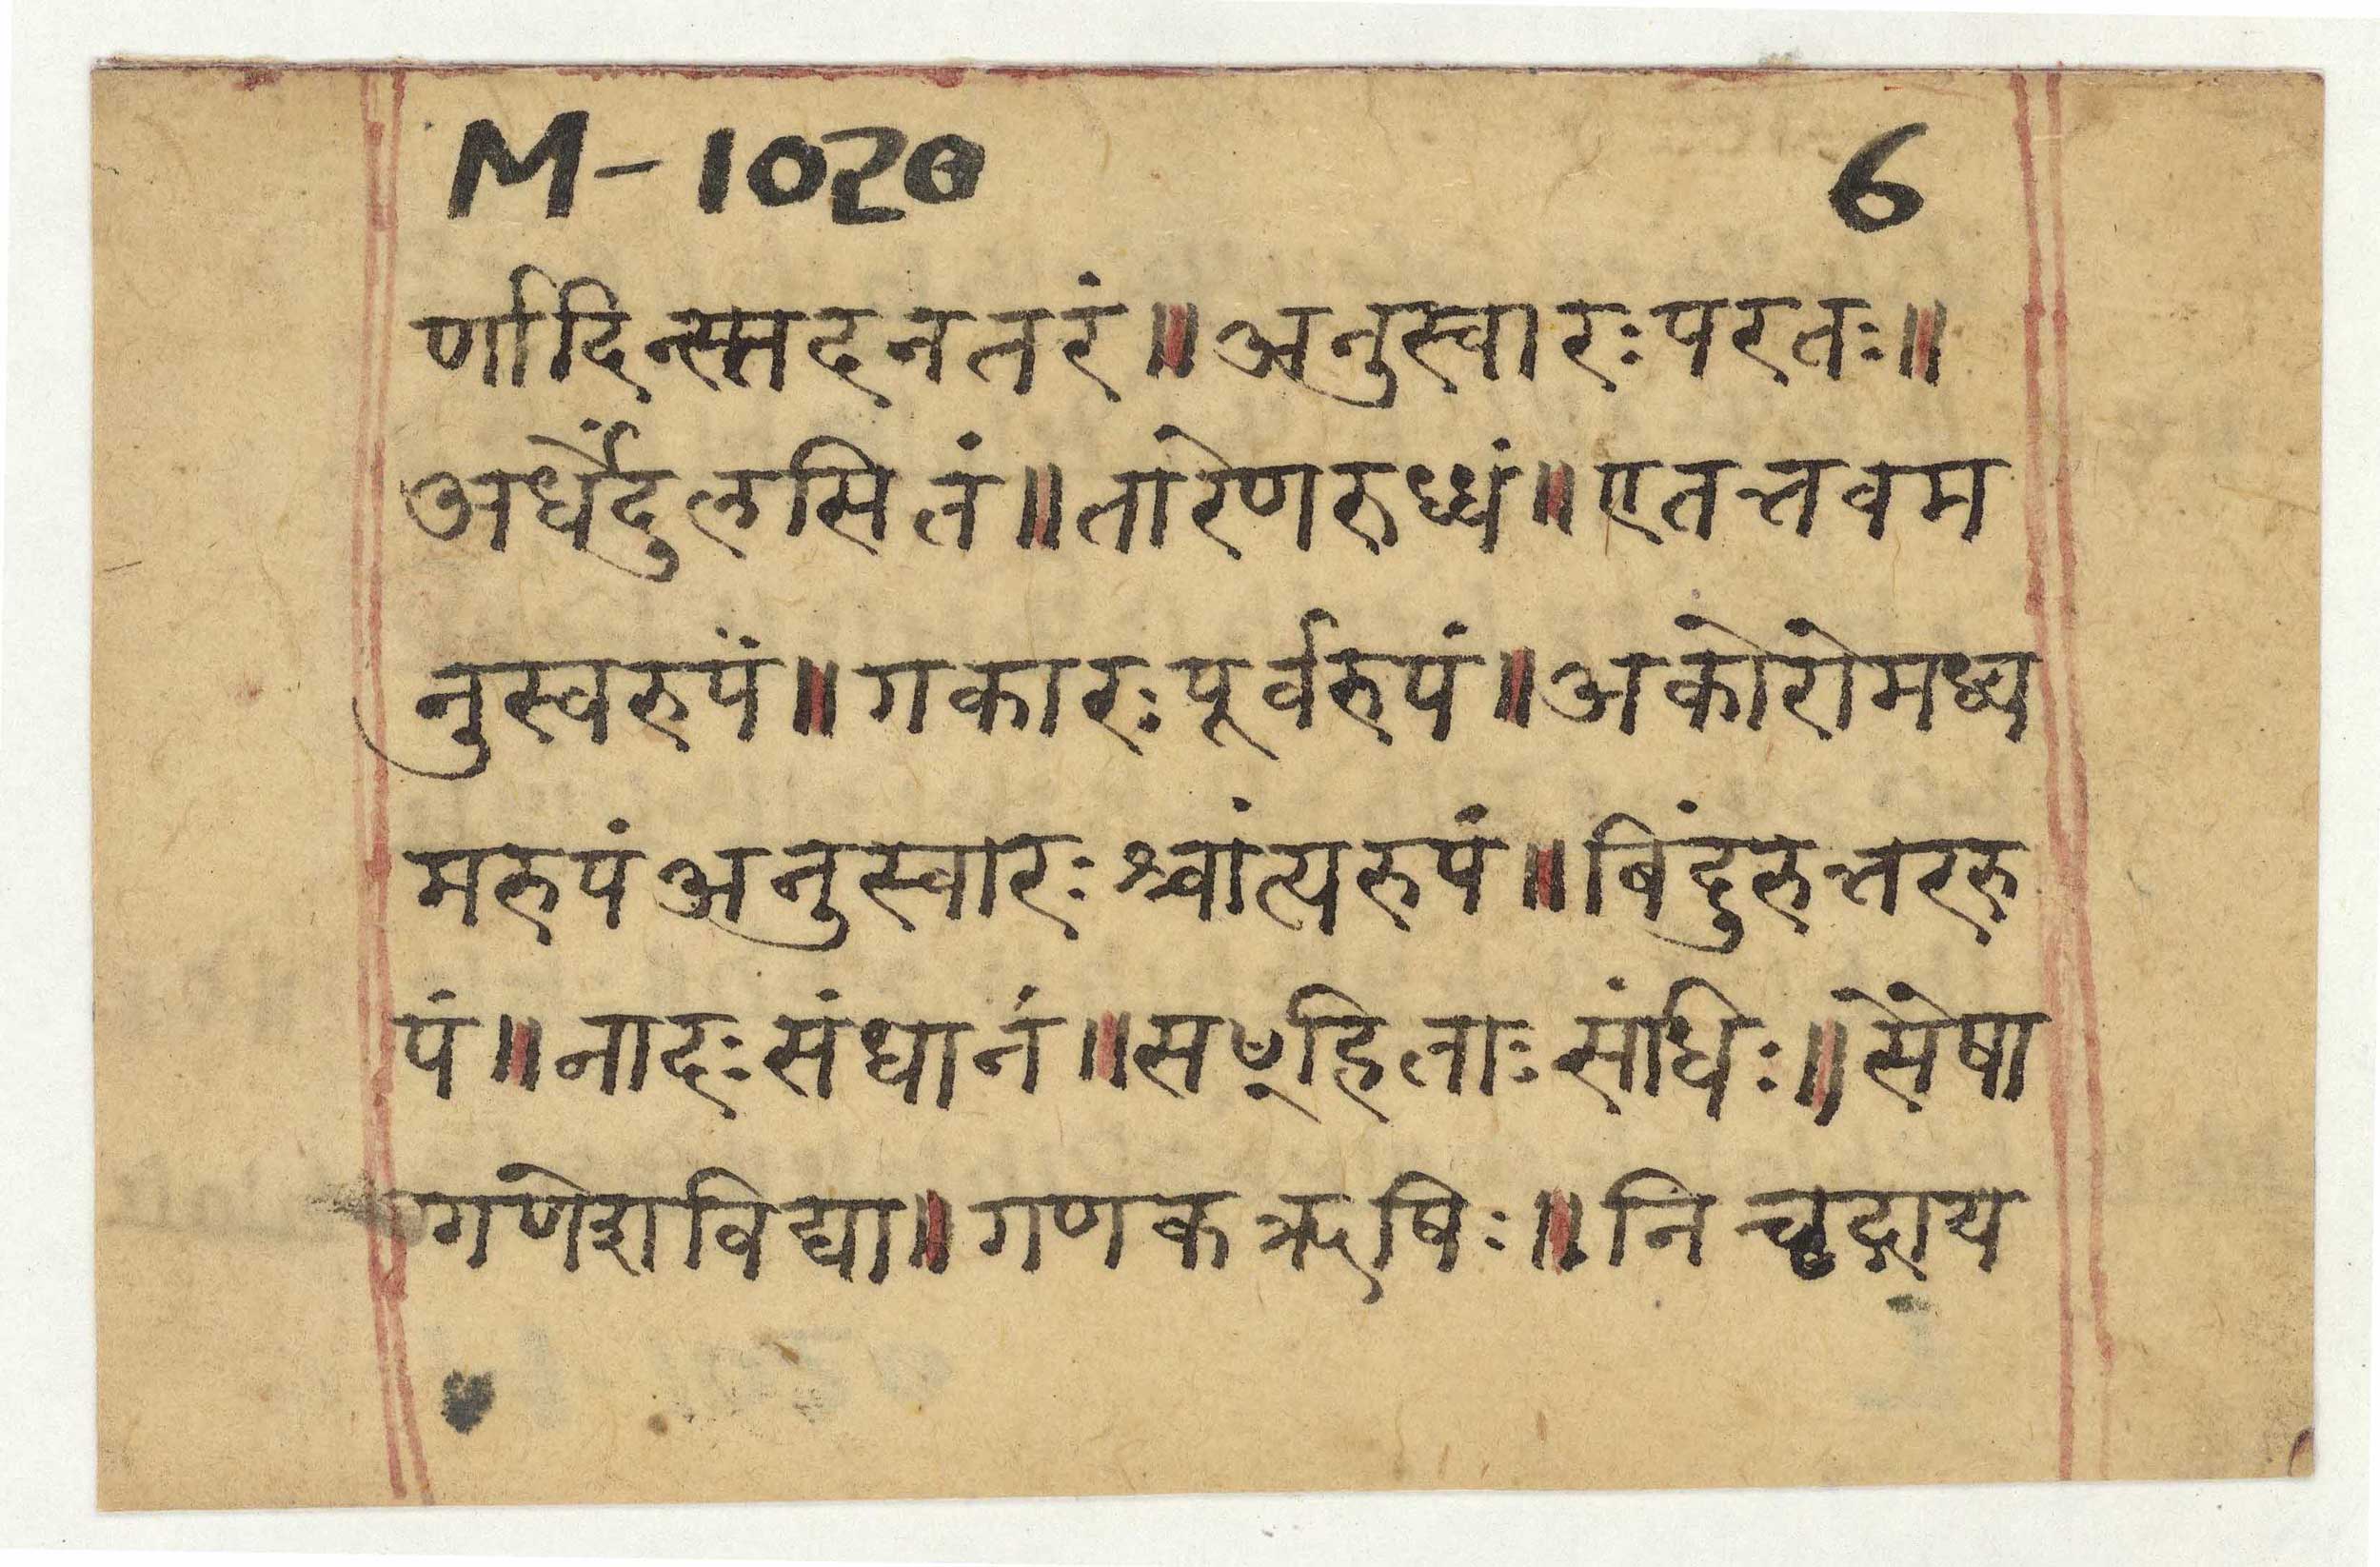 M-1020 6
र्णादिन्स्तदनतरं॥अनुस्वारःपरतः॥
अर्धेंदुलसितं॥तारेणरुध्धं॥एतत्तवम
नुस्वरुपं॥गकारःपूर्वरुपं॥अकोरोमध्य
मरुपंअनुस्वारःश्चांत्यरुपं॥बिंदुंरुत्तररु
पं॥नादःसंधानं॥सꣳहिताःसंधिः॥सेषा
गणेशविद्या॥गणकऋषिः॥निचृद्गाय